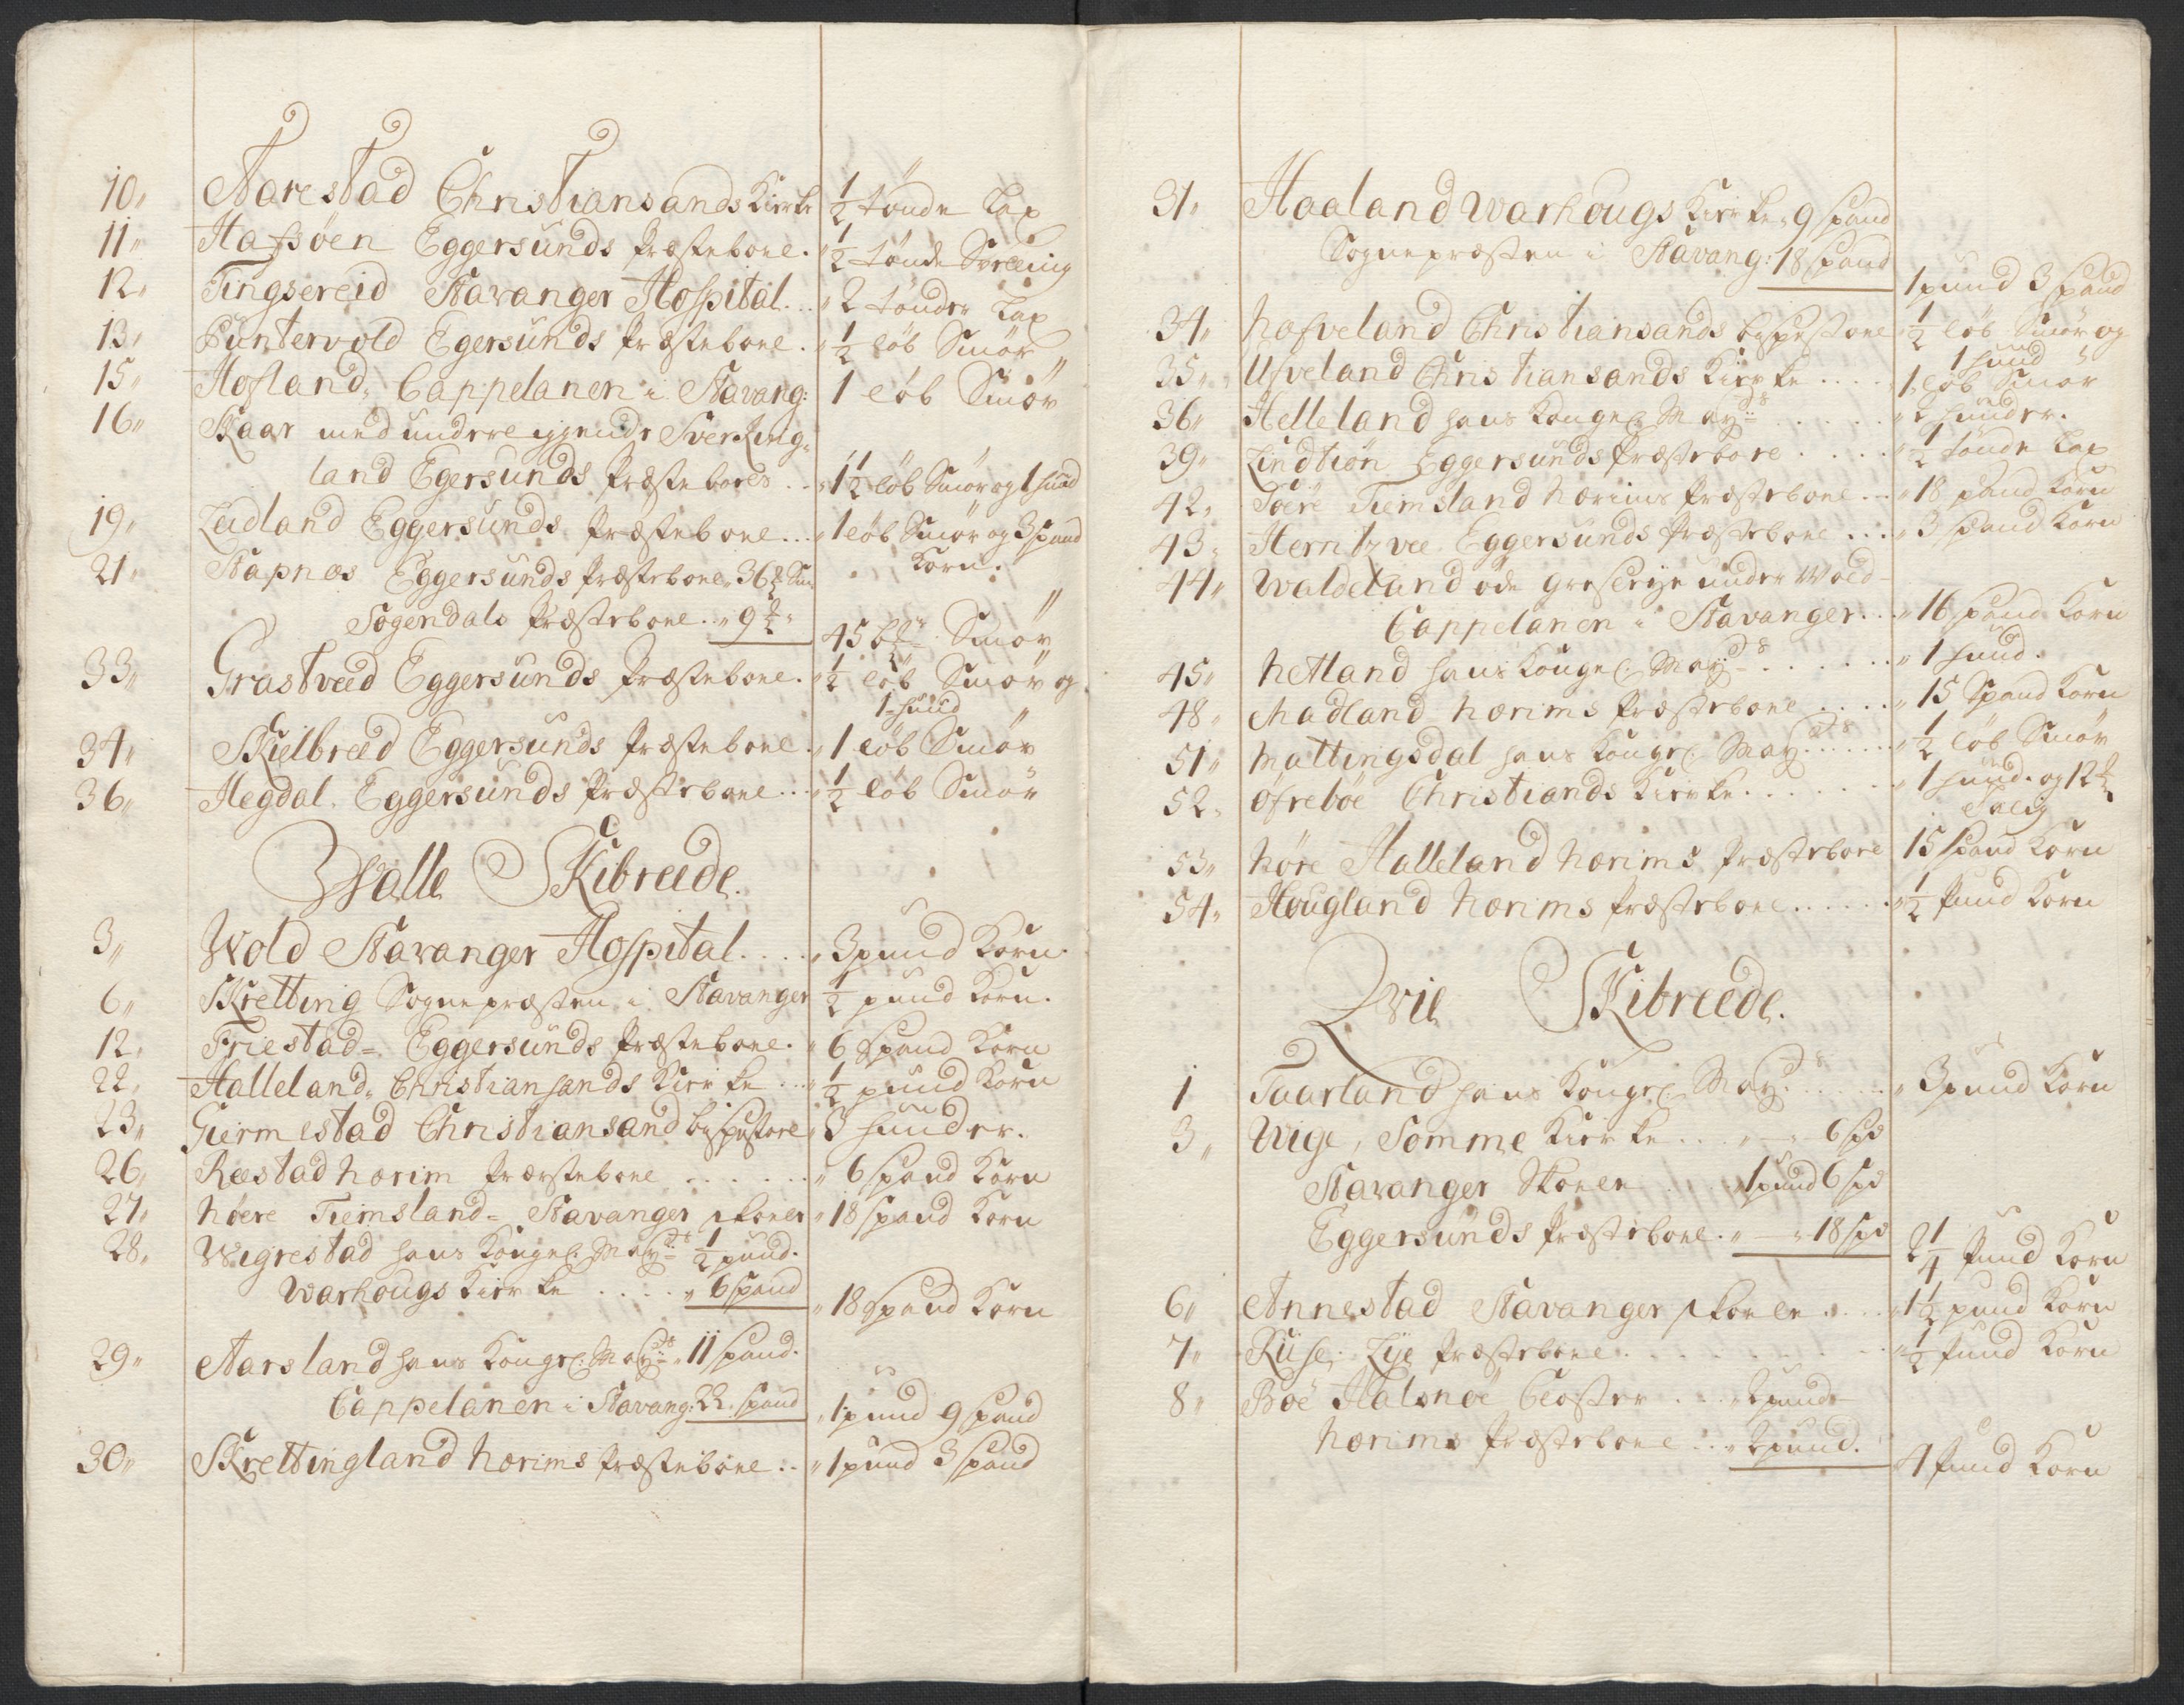 10„ Aarestad Christiansands Kircke ½ tønde Lax
11„ Hafsöen Eggersunds Præstebole. „ ½ tønde Soeling
12„ Tingsereid Stavanger Hospital... „ 2 tønder Lax
13„ Puntervold Egersunds Præstebole. „ ½ løb Smør
15„ Hofland, Cappelanen i Stavang: 1 løb Smør
16„ Skaar med underliggende Sverting-
land Egersunds Præsteboles.. „ 1½ løb Smør og 1 hund
19„ Leidland Eggersunds Præstebole... „ 1 løb Smør og 3 spand
Korn.
21„ Stapnos Eggersunds Præstebole „ 36 ℔ Sm:
Sogendals Præstebole. „ 9 ℔ „
45 ℔ Smør
33„ Grastveed Eggersunds Præstebole. „ ½ løb Smør og
1 hund
34„ Skielbreed Eggersunds Præstebole. „ 1 løb Smør
36„ Hegdal. Eggersunds Præstebole... „ ½ løb Smør
Walle Skibreede.
3„ Wold Stavanger Hospital.... „ 3 pund Korn.
6„ Skretting Sognepræsten i Stavanger ½ pund Korn.
12„ Friestad = Eggersunds Præstebole. „ 6 Spand Korn
22„ Halleland „ Christiansands Kircke... „ ½ pund Korn
23„ Giermestad Christiansand bispestole „ 3 hunder.
26„ Reestad hærim Præstebole ...... „ 6 spand Korn
27„ höere Tiemsland = Stavanger skoler „ 18 spand Korn
28„ Wigrestad hans Kongel: May:ts ½ pund.
Warhougs Kircke .... „ 6 spand
„ 18 spand Korn
29„ Aarsland hans Kongel: May:ts „ 11 spand.
Cappelanen i Stavang: 22 spand „ 1 pund 9 spand
30„ Skrettingland hærims Præstebole.. „ 1 pund 3 spand
31„ Haaland Warhougs Kircke „ 9 spand
Sognepræsten i Stavang: 18 spand
1 pund 3 spand
34„ hafveland Christiansands bispestole ½ løb Smør og
1 hund
35„ Ufveland Christiansands Kircke .... „ 1 løb Smør
36„ Helleland hans Kongel: May:ts ...... „ 2 hunder.
39„ Lindtiön Eggersunds Præstebole ..... „ ½ tønde Lax
42„ Söere Tiemsland hærims Præstebole... „ 18 spand Korn
43„ Herritzvee. Eggersunds Præstebole ... „ 3 spand Korn
44„ Waldeland øde greslerje under Wold-
Cappelanen i Stavanger... „ 16 spand Korn
45„ hetland hans Kongel: May:ts ...... „ 1 hund.
48„ Madland hærims Præstebole .... „ 15 Spand Korn
51„ mattingsdal hans Kongel: May:ts ..... „ ½ løb Smør
52„ öfreböe Christiands Kircke....... „ 1 hund. og 12 ℔
Talig
53„ höre Halleland hærims Præstebole 15 spand Korn
54„ Hougland hærims Præstebole...... „ ½ Pund Korn
Qvie Skibreede.
1 Taarland hans Kongel: May:ts ..... „ 3 pund Korn
3„ Wige, Somme Kircke ... „ — „ 6 spd
Stavanger Skoler . . „ 1 pund 6 spd
Eggersunds Præstebole. „ — „ 18 spd 2¼ Pund Korn
6„ Annestad Stavanger skoler .... „ 1½ pund Korn
7„ Riise. Lye Præstebole........ „ ½ Pund Korn
8„ Böe Halsnöe Closter ... „ 2 pund
hærims Præstebole ... „ 2 pund.
4 Pund Korn